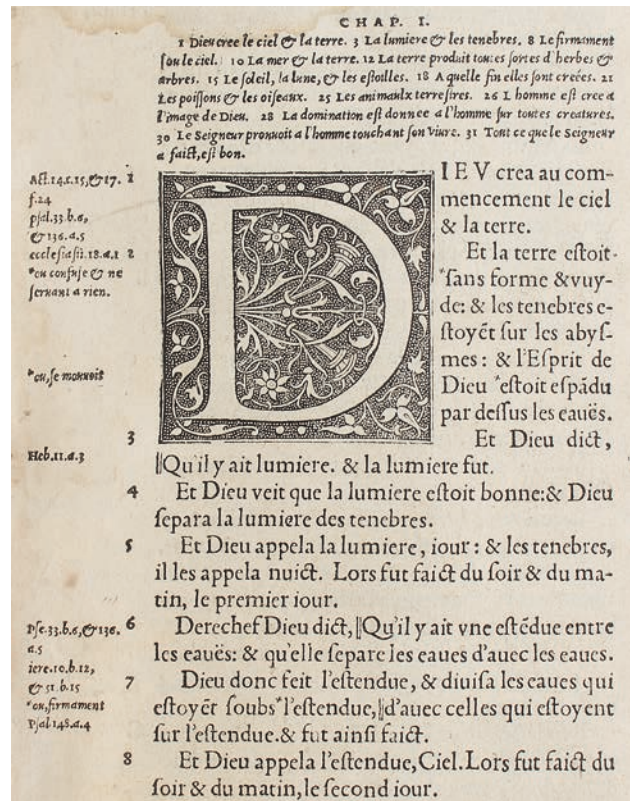 CHAP. I.
1 Dieu cree le ciel & la terre. 3 La lumiere & les tenebres. 8 Le firmament
ſou le ciel. 10 La mer & la terre. 12 La terre produit toutes ſortes d'herbes &
arbres. 15 Le ſoleil, la lune, & les eſtoilles. 18 A quelle fin elles ſont creées. 21
Les poiſſons & les oiſeaux. 25 Les animaulx terreſtres. 26 L'homme eſt cree a
l'image de Dieu. 28 La domination eſt donnee a l'homme ſur toutes creatures.
30 Le Seigneur prouuoit a l'homme touchant ſon viure. 31 Tout ce que le Seigneur
a faict, eſt bon.
Act.14.c.15, & 17.
f.24
pſal.33.b.6,
& 136.a.5
eccleſiaſti.18.a.1
*ou confuſe & ne
ſeruant a rien.
*ou, ſe mouuoit
Heb.11.a.3
1 DIEV crea au com-
mencement le ciel
& la terre.
2 Et la terre eſtoit
*ſans forme & vuy-
de: & les tenebres e-
ſtoyẽt ſur les abyſ-
mes: & l'Eſprit de
Dieu *eſtoit eſpãdu
par deſſus les eauës.
3 Et Dieu dict,
‖Qu'il y ait lumiere. & la lumiere fut.
4 Et Dieu veit que la lumiere eſtoit bonne: & Dieu
ſepara la lumiere des tenebres.
5 Et Dieu appela la lumiere, iour: & les tenebres,
il les appela nuict. Lors fut faict du ſoir & du ma-
tin, le premier iour.
Pſe.33.b.6, & 136.
a.5
iere.10.b.12,
& 51.b.15
*ou, firmament
Pſal.148.a.4
6 Derechef Dieu dict, ‖Qu'il y ait vne eſtẽdue entre
les eauës: & qu'elle ſepare les eaues d'auec les eaues.
7 Dieu donc feit l'eſtendue, & diuiſa les eaues qui
eſtoyẽt ſoubs *l'eſtendue, ‖d'auec celles qui eſtoyent
ſur l'eſtendue. & fut ainſi faict.
8 Et Dieu appela l'eſtendue, Ciel. Lors fut faict du
ſoir & du matin, le ſecond iour.